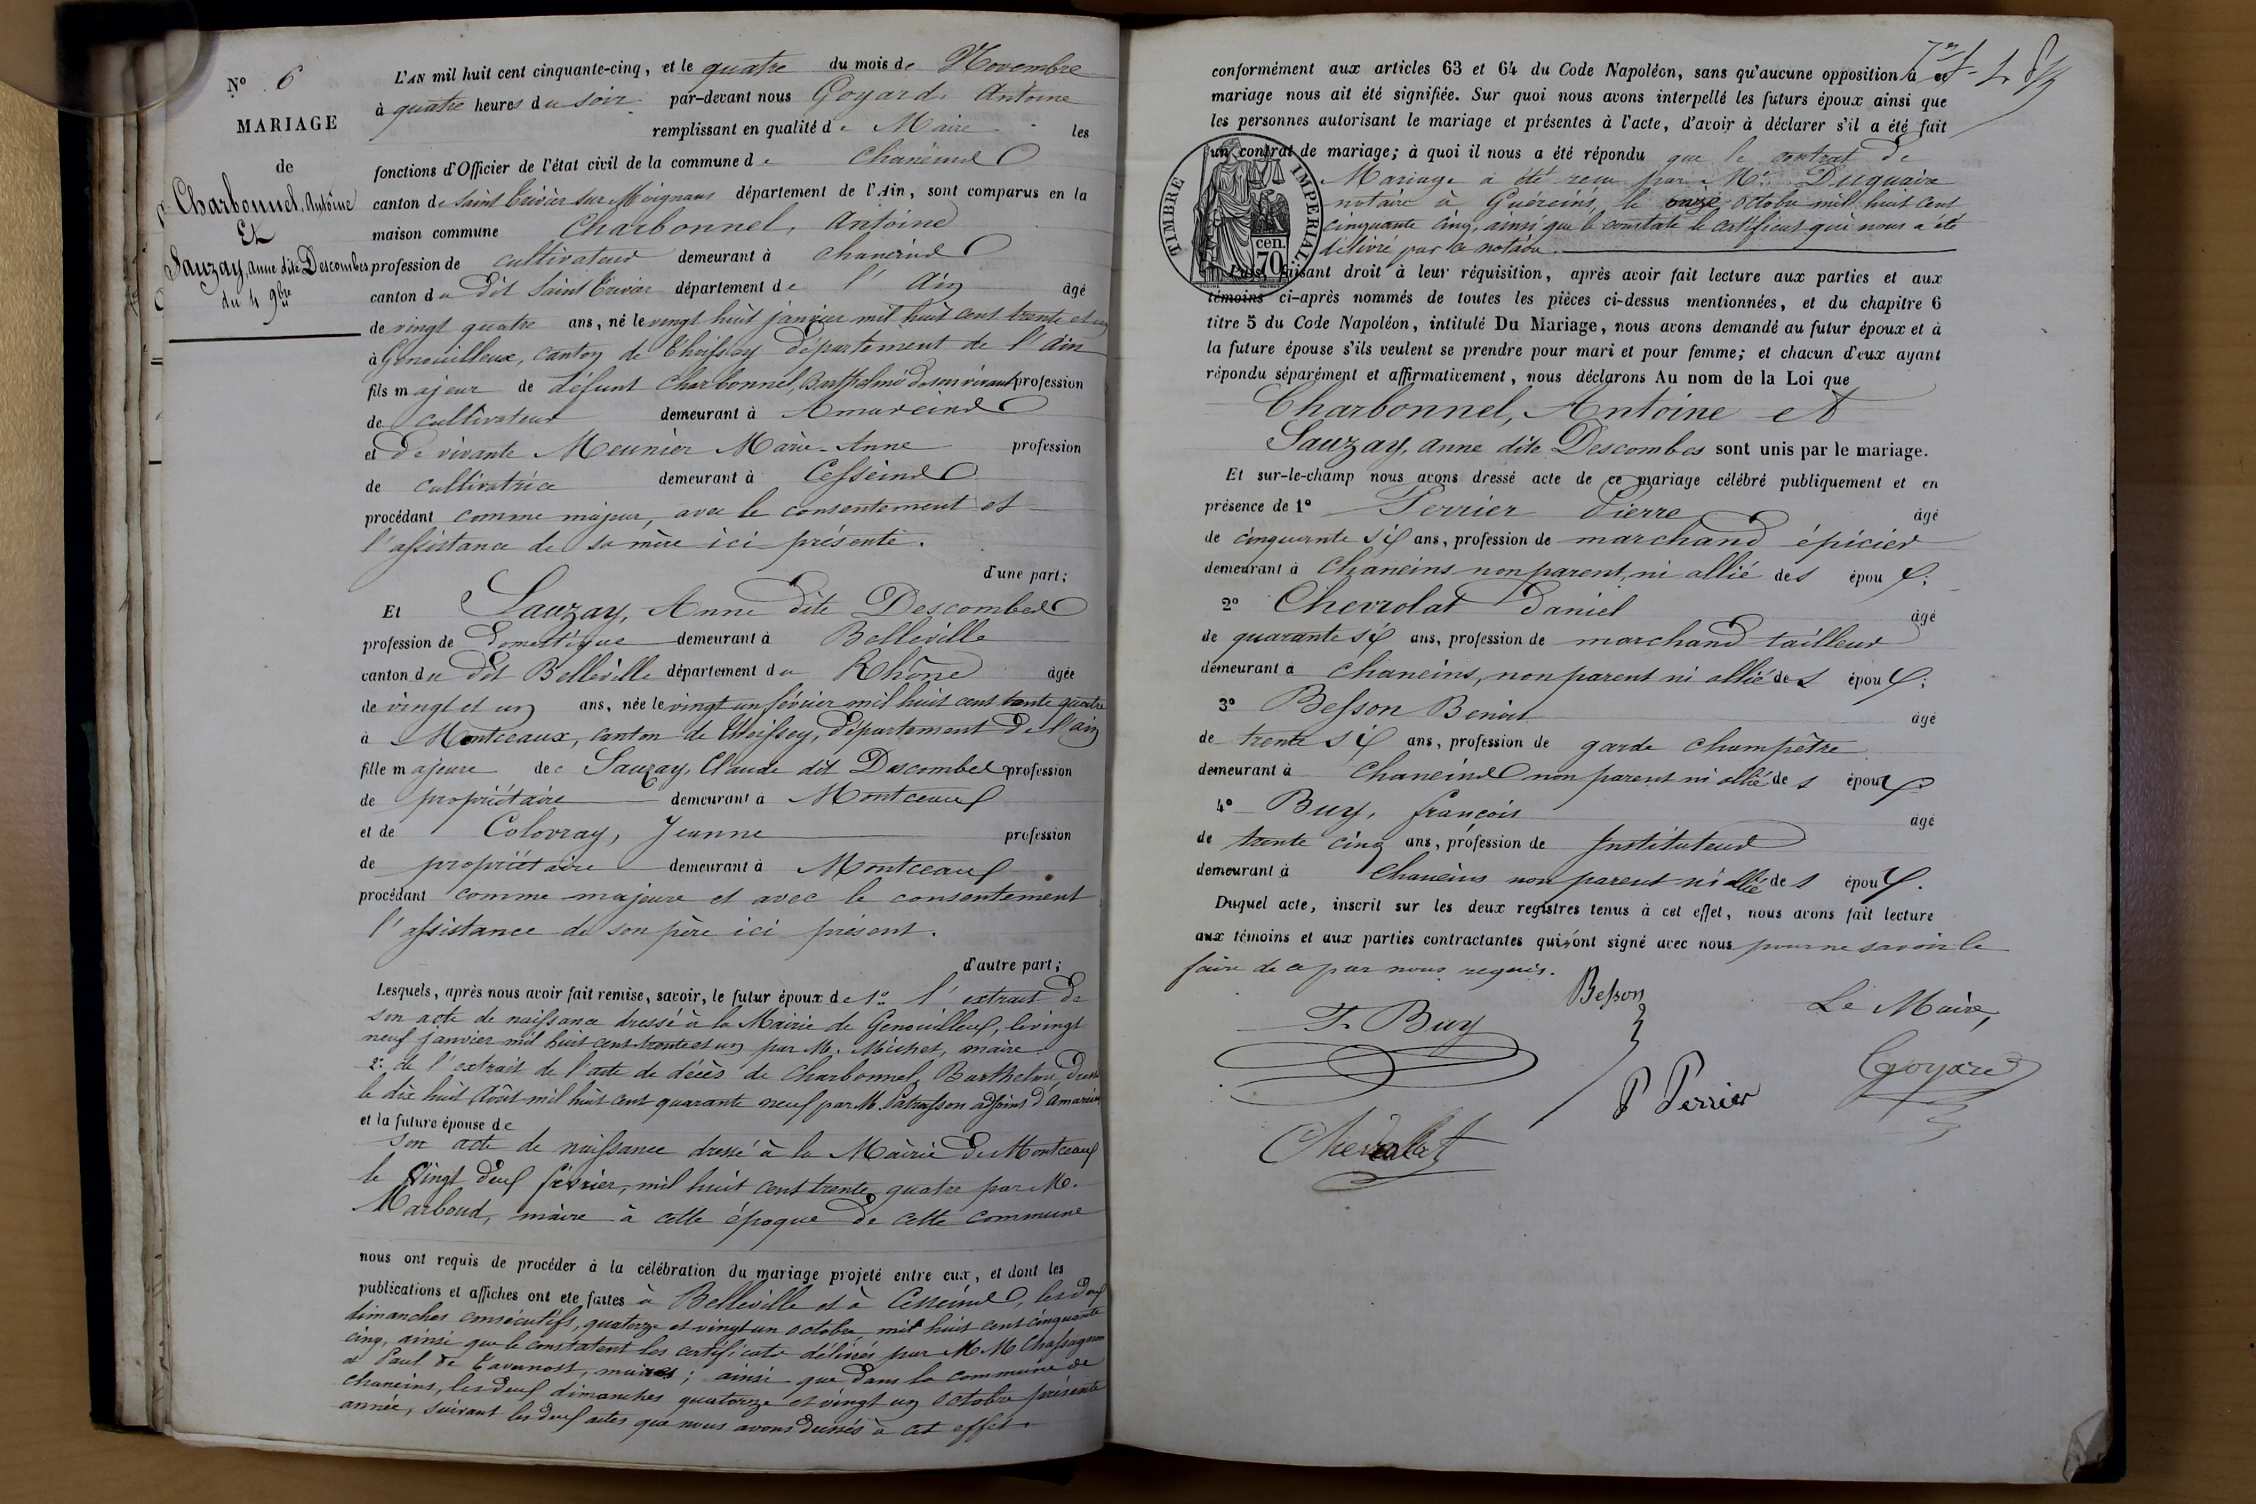 N° 6
MARIAGE
de
Charbonnel, Antoine
Et
Sauzay, anne dite Descombes
du 4 9bre
L'AN mil huit cent cinquante-cinq, et le quatre du mois de Novembre
à quatre heures du soir par-devant nous Goyard, Antoine
remplissant en qualité de Maire les
fonctions d'Officier de l'état civil de la commune de Chaneins
canton de Saint Trivier sur Moignans département de l'Ain, sont comparus en la
maison commune Charbonnel, Antoine
profession de cultivateur demeurant à chaneins
canton du dit Saint Trivier département de l'Ain âgé
de vingt quatre ans, né le vingt huit janvier mil huit cent trente et un
à Genouilleux, canton de Thoissey département de l'Ain
fils majeur de défunt Charbonnel, Barthelmé de son vivant profession
de cultivateur demeurant à Amareins
et de vivante Meunier Marie-Anne profession
de cultivatrice demeurant à Cesseins
procédant comme majeur, avec le consentement et
l'assistance de sa mère ici présente.
d'une part;
Et Sauzay, Anne dite Descombes
profession de Domestique demeurant à Belleville
canton du dit Belleville département du Rhône âgée
de vingt et un ans, née le vingt un février mil huit cent trente quatre
à Montceaux, canton de Thoissey, département de l'ain
fille majeure de Sauzay, Claude dit Descombes profession
de propriétaire demeurant à Montceaux
et de Colovray, Jeanne profession
de propriétaire demeurant à Montceaux
procédant comme majeure et avec le consentement
l'assistance de son père ici présent.
d'autre part;
Lesquels, après nous avoir fait remise, savoir, le futur époux de 1° l'extrait de
son acte de naissance dressé à la Mairie de Genouilleux, le vingt
neuf janvier mil huit cent trente et un par M. Michet, maire
2° de l'extrait de l'acte de décès de Charbonnel Barthelmé, dressé
le dix huit Août mil huit cent quarante neuf par M. adjoint d'Amareins
et la future épouse de
son acte de naissance dressé à la Mairie de Montceaux
le vingt deux février, mil huit cent trente quatre par M.
Marboud, maire à cette époque de cette commune
nous ont requis de procéder à la célébration du mariage projeté entre eux, et dont les
publications et affiches ont été faites à Belleville et à Cesseins, les deux
dimanches consécutifs, quatorze et vingt un octobre mil huit cent cinquante
cinq, ainsi que le constatent les certificats délivrés par M M Chassagnon
et Paul de Tavernost, maires; ainsi que dans la commune de
chaneins, les deux dimanches quatorze et vingt un octobre présente
année, suivant les deux actes que nous avons dressés à cet effet.
conformément aux articles 63 et 64 du Code Napoléon, sans qu'aucune opposition à ce
mariage nous ait été signifiée. Sur quoi nous avons interpellé les futurs époux ainsi que
les personnes autorisant le mariage et présentes à l'acte, d'avoir à déclarer s'il a été fait
un contrat de mariage; à quoi il nous a été répondu que le contrat de
Mariage a été reçu par Me. Duquaire
notaire à Guéreins, le onze octobre mil huit cent
cinquante cinq, ainsi que le constate le certificat qui nous a été
délivré par ce notaire.
TIMBRE IMPERIAL
cen.
70
Puis, faisant droit à leur réquisition, après avoir fait lecture aux parties et aux
témoins ci-après nommés de toutes les pièces ci-dessus mentionnées, et du chapitre 6
titre 5 du Code Napoléon, intitulé Du Mariage, nous avons demandé au futur époux et à
la future épouse s'ils veulent se prendre pour mari et pour femme; et chacun d'eux ayant
répondu séparément et affirmativement, nous déclarons Au nom de la Loi que
Charbonnel, Antoine et
Sauzay, anne dite Descombes sont unis par le mariage.
Et sur-le-champ nous avons dressé acte de ce mariage célébré publiquement et en
présence de 1° Perrier Pierre âgé
de cinquante six ans, profession de marchand épicier
demeurant à Chaneins non parent, ni allié des époux;
2° Chevrolat Daniel âgé
de quarante six ans, profession de marchand tailleur
demeurant à chaneins, non parent ni allié des époux;
3° Besson Benoit âgé
de trente six ans, profession de garde champêtre
demeurant à chaneins non parent ni allié des époux
4° Buy, françois âgé
de trente cinq ans, profession de Instituteur
demeurant à Chaneins non parent ni allié des époux.
Duquel acte, inscrit sur les deux registres tenus à cet effet, nous avons fait lecture
aux témoins et aux parties contractantes qui n'ont signé avec nous pour ne savoir le
faire de ce par nous requis.
Besson
Le Maire,
F. Buy
Goyard
P Perrier
Chevrolat